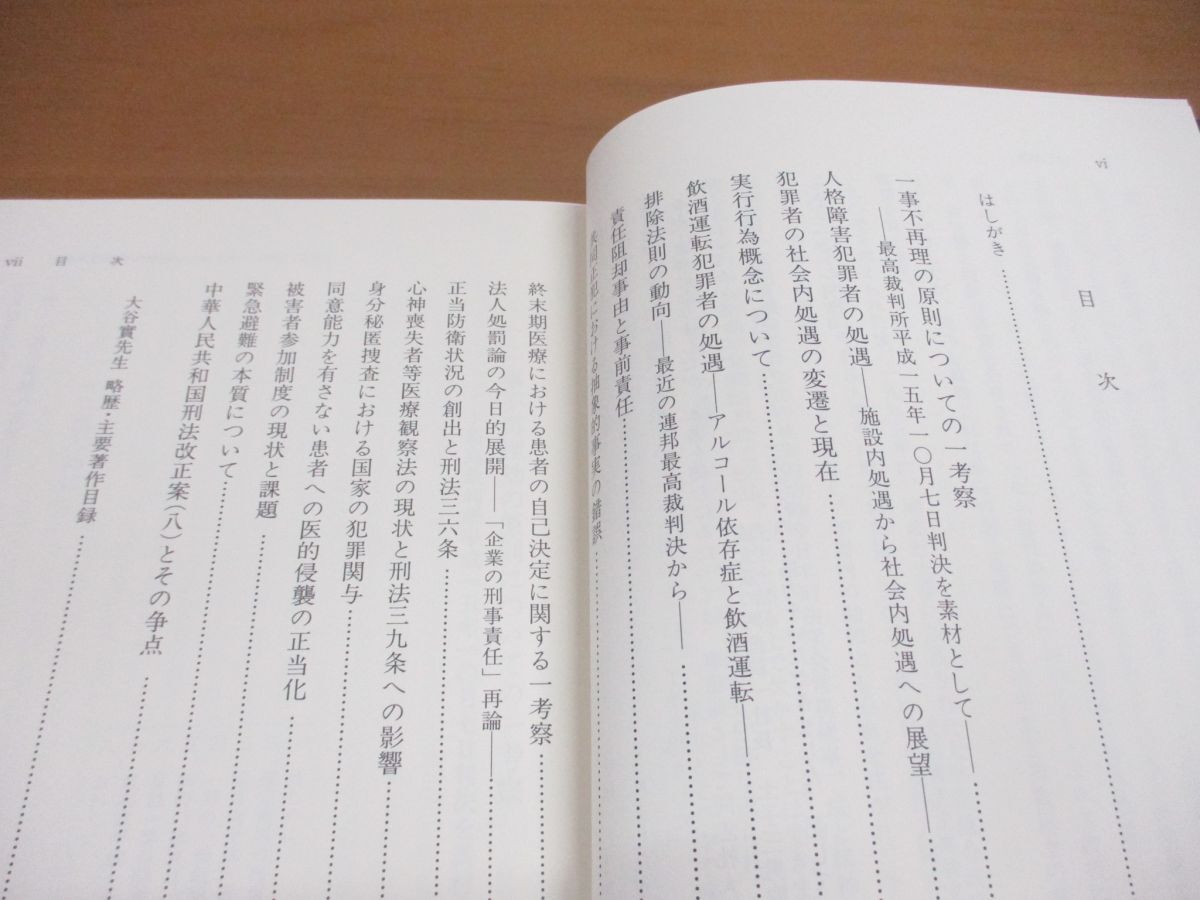 vi
目次
はしがき
一事不再理の原則についての一考察
――最高裁判所平成一五年一〇月七日判決を素材として――
人格障害犯罪者の処遇――施設内処遇から社会内処遇への展望――
犯罪者の社会内処遇の変遷と現在
実行行為概念について
飲酒運転犯罪者の処遇――アルコール依存症と飲酒運転――
排除法則の動向――最近の連邦最高裁判決から――
責任阻却事由と事前責任
共同正犯における抽象的事実の錯誤
終末期医療における患者の自己決定に関する一考察
法人処罰論の今日的展開――「企業の刑事責任」再論――
正当防衛状況の創出と刑法三六条
心神喪失者等医療観察法の現状と刑法三九条への影響
身分秘匿捜査における国家の犯罪関与
同意能力を有さない患者への医的侵襲の正当化
被害者参加制度の現状と課題
緊急避難の本質について
中華人民共和国刑法改正案（八）とその争点
大谷實先生 略歴・主要著作目録
vii 目次